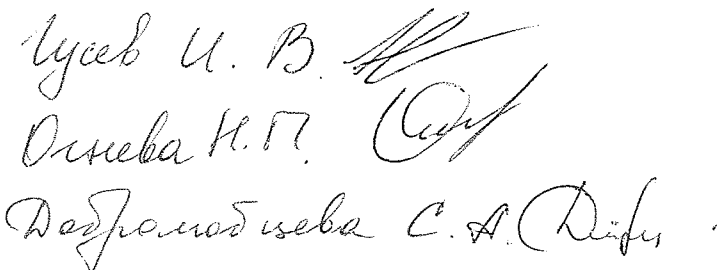 Гусев И. В.
Огнева Н.П.
Добромобщева С. А.